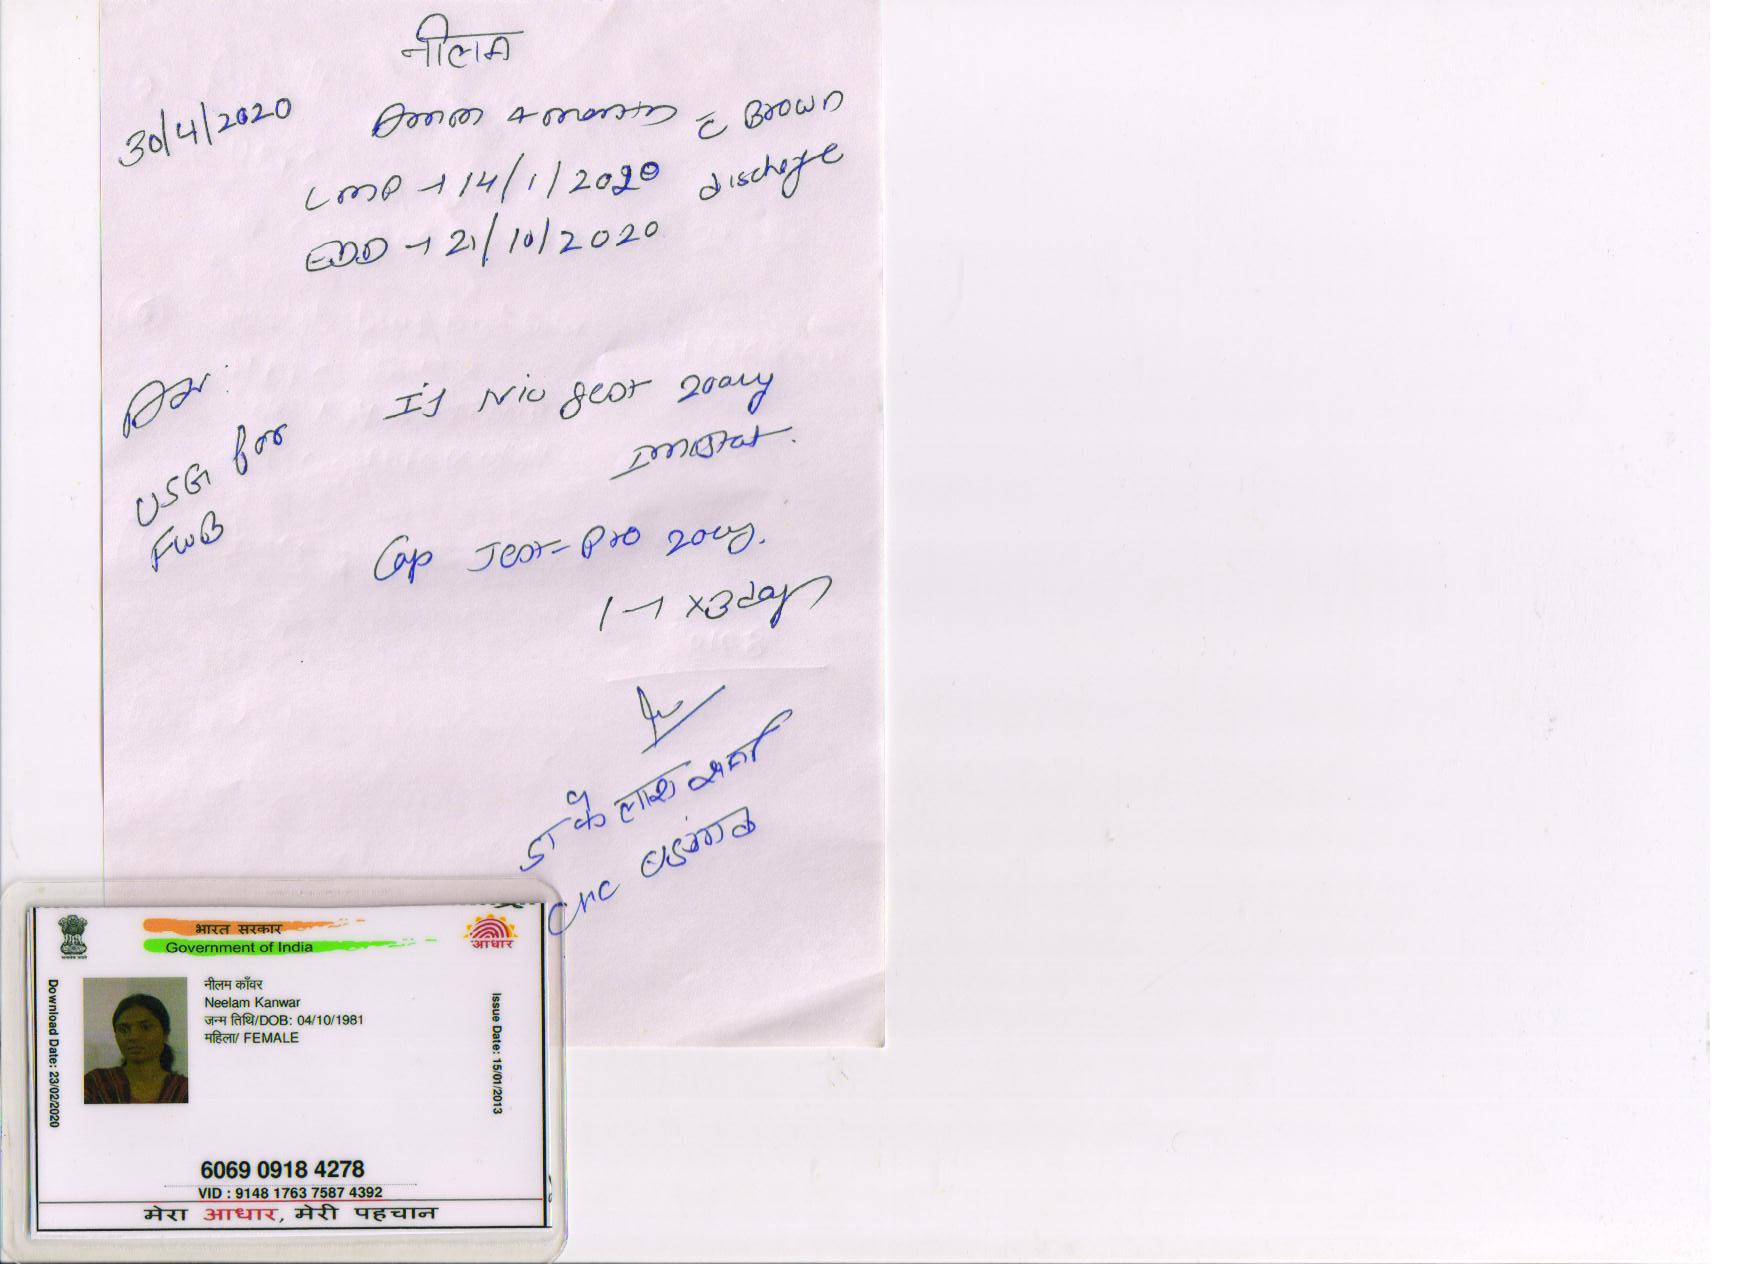 नीलम
30/4/2020
4 month c̄ Brown
discharge
LMP → 14/1/2020
EDD → 21/10/2020
Adv:
USG for
FWB
200mg
IM Stat.
Cap Jest-Pro 200mg.
1 → x3 days
डा कैलाश शर्मा
CHC
भारत सरकार
Government of India
आधार
नीलम काँवर
Neelam Kanwar
जन्म तिथि/DOB: 04/10/1981
महिला/ FEMALE
Download Date: 23/02/2020
Issue Date: 15/01/2013
6069 0918 4278
VID : 9148 1763 7587 4392
मेरा आधार, मेरी पहचान